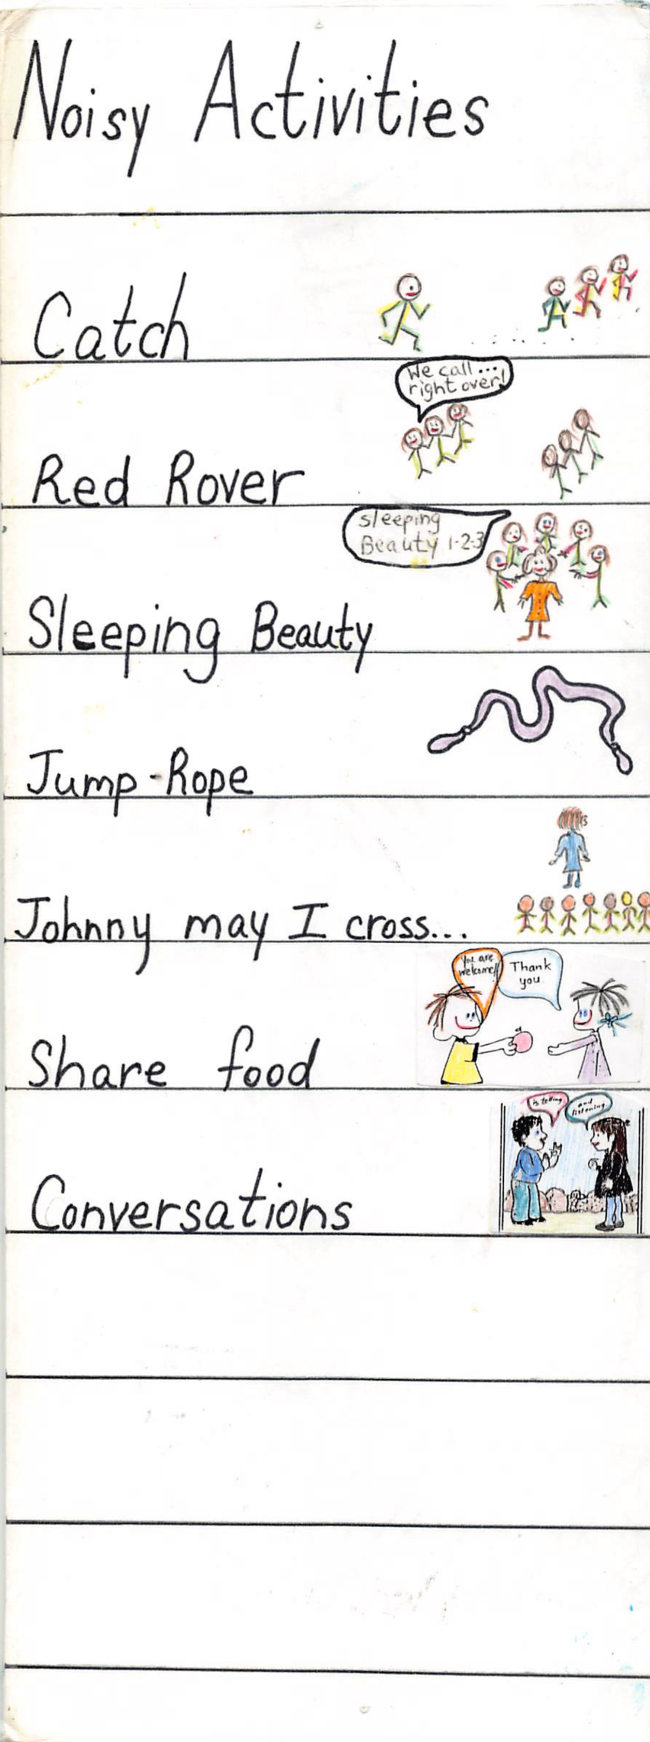 Noisy Activities
Catch
We call...
right over!
Red Rover
Sleeping
Beauty 1-2-3
Sleeping Beauty
Jump-Rope
Johnny may I cross...
You are
welcome!!
Thank
you.
Share food
is talking
and
listening
Conversations